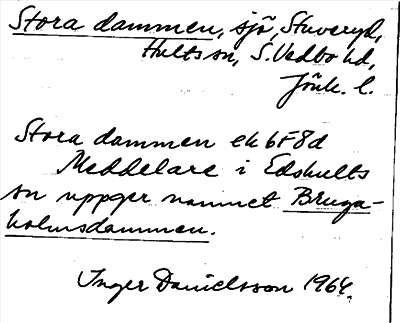 Stora dammen, sjö, Stuveryd,
Hults sn, S. Vedbo hd,
Jönk. l.
Stora dammen ek 6F8d
Meddelare i Edshults
sn uppger namnet Bruza-
holmsdammen.
Inger Danielsson 1964.